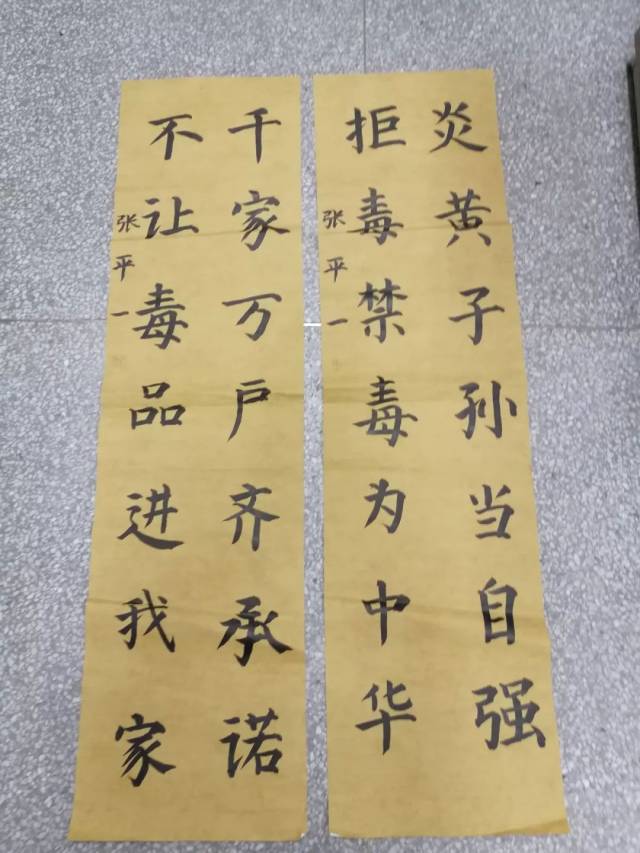 炎黄子孙当自强
拒毒禁毒为中华
张平一
千家万户齐承诺
不让毒品进我家
张平一